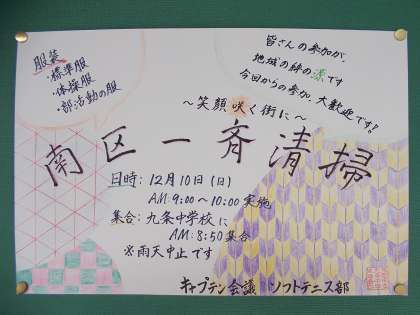 服装
・標準服
・体操服
・部活動の服
皆さんの参加が、
地域の絆の源です
今回からの参加、大歓迎です！
～笑顔咲く街に～
南区一斉清掃
日時：12月10日（日）
AM 9:00～10:00実施
集合：九条中学校に
AM 8:50集合
※雨天中止です
キャプテン会議 ソフトテニス部